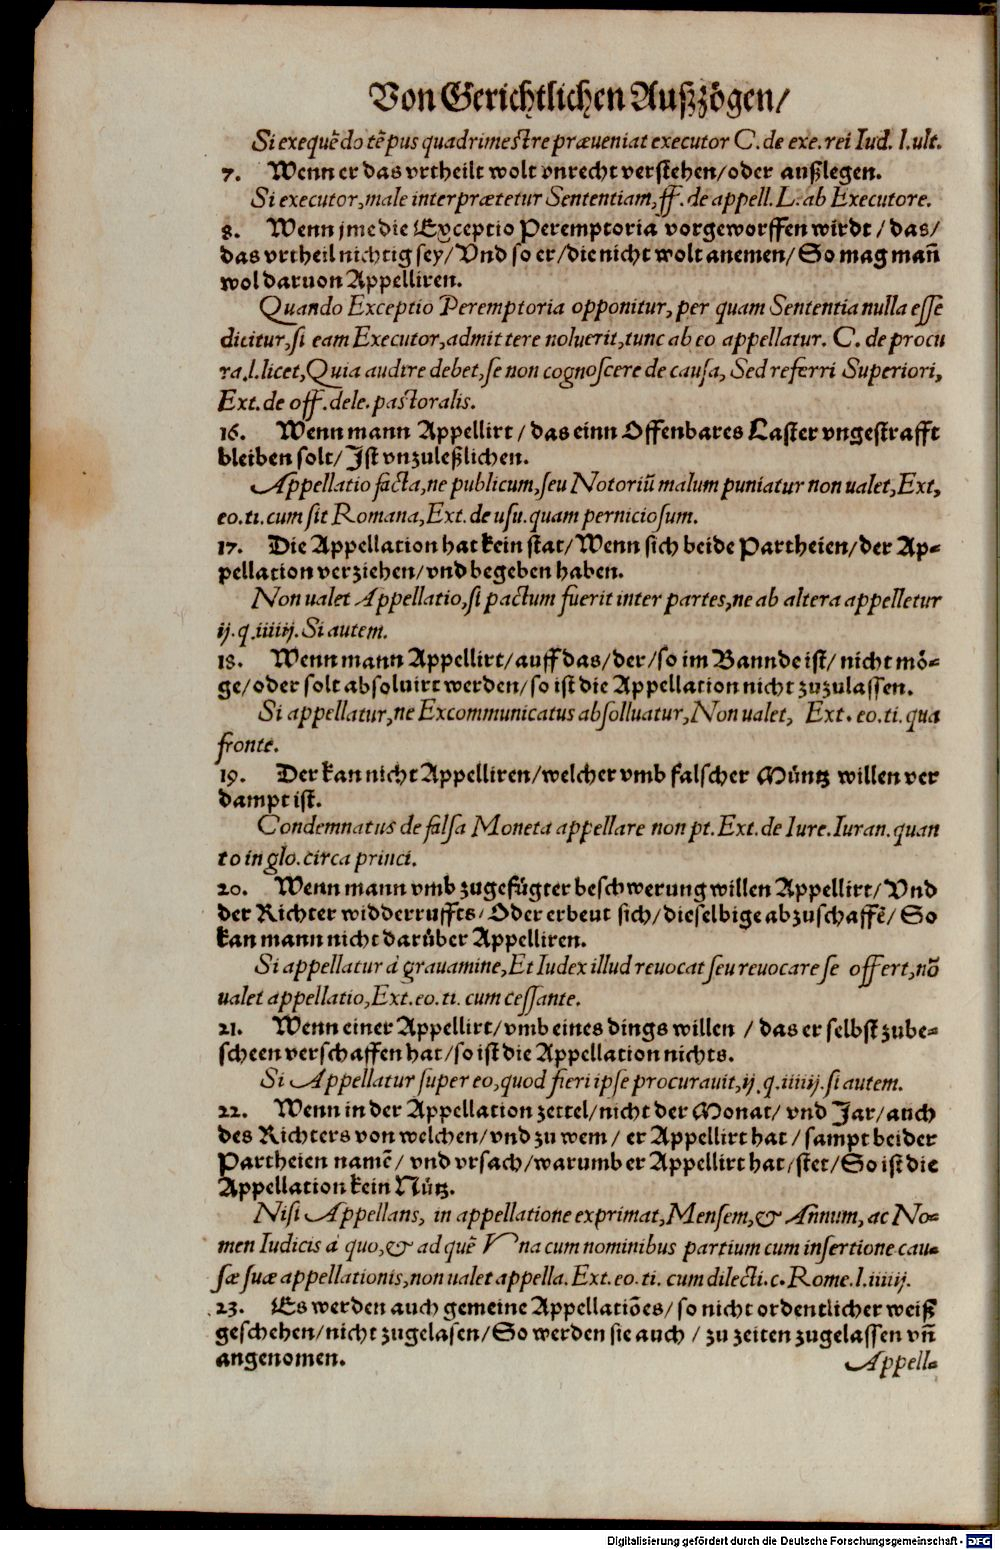 Von Gerichtlichen Außzögen/
Si exequẽdo tẽpus quadrimestre præueniat executor C. de exe. rei Iud. l. ult.
7. Wenn er das vrtheilt wolt vnrecht verstehen/oder außlegen.
Si executor, male interprætetur Sententiam, ff. de appell. L. ab Executore.
8. Wenn jme die Exceptio Peremptoria vorgeworffen wirdt / das/
das vrtheil nichtig sey/ Vnd so er/die nicht wolt anemen/ So mag mañ
wol daruon Appelliren.
Quando Exceptio Peremptoria opponitur, per quam Sententia nulla esse
dicitur, si eam Executor, admittere noluerit, tunc ab eo appellatur. C. de procu
ra. l. licet, Quia audire debet, se non cognoscere de causa, Sed referri Superiori,
Ext. de off. dele. pastoralis.
16. Wenn mann Appellirt / das einn Offenbares Laster vngestrafft
bleiben solt/ Ist vnzuleßlichen.
Appellatio facta, ne publicum, seu Notoriũ malum puniatur non ualet, Ext,
eo. ti. cum sit Romana, Ext. de usu. quam perniciosum.
17. Die Appellation hat kein stat/ Wenn sich beide Partheien/der Ap=
pellation verziehen/vnd begeben haben.
Non ualet Appellatio, si pactum fuerit inter partes, ne ab altera appelletur
ij. q. iiiiij. Si autem.
18. Wenn mann Appellirt/auff das/der/so im Bannde ist/ nicht mö=
ge/oder solt absoluirt werden/so ist die Appellation nicht zuzulassen.
Si appellatur, ne Excommunicatus absolluatur, Non ualet, Ext. eo. ti. qua
fronte.
19. Der kan nicht Appelliren/welcher vmb falscher Müntz willen ver
dampt ist.
Condemnatus de falsa Moneta appellare non pt. Ext. de Iure. Iuran. quan
to in glo. circa princi.
20. Wenn mann vmb zugefügter beschwerung willen Appellirt/ Vnd
der Richter widderruffts/ Oder erbeut sich/dieselbige abzuschaffẽ/ So
kan mann nicht darüber Appelliren.
Si appellatur à grauamine, Et Iudex illud reuocat seu reuocare se offert, nõ
ualet appellatio, Ext. eo. ti. cum cessante.
21. Wenn einer Appellirt/vmb eines dings willen / das er selbst zube=
scheen verschaffen hat/so ist die Appellation nichts.
Si Appellatur super eo, quod fieri ipse procurauit, ij. q. iiiiij. si autem.
22. Wenn in der Appellation zettel/nicht der Monat/ vnd Jar/auch
des Richters von welchen/vnd zu wem / er Appellirt hat / sampt beider
Partheien namẽ/ vnd vrsach/warumb er Appellirt hat/stet/So ist die
Appellation kein Nütz.
Nisi Appellans, in appellatione exprimat, Mensem, & Annum, ac No=
men Iudicis à quo, & ad quẽ Vna cum nominibus partium cum insertione cau=
sæ suæ appellationis, non ualet appella. Ext. eo. ti. cum dilecti. c. Rome. l. iiiiij.
23. Es werden auch gemeine Appellatiões/ so nicht ordentlicher weiß
geschehen/nicht zugelasen/So werden sie auch / zu zeiten zugelassen vñ
angenomen.
Appell=
Digitalisierung gefördert durch die Deutsche Forschungsgemeinschaft - DFG